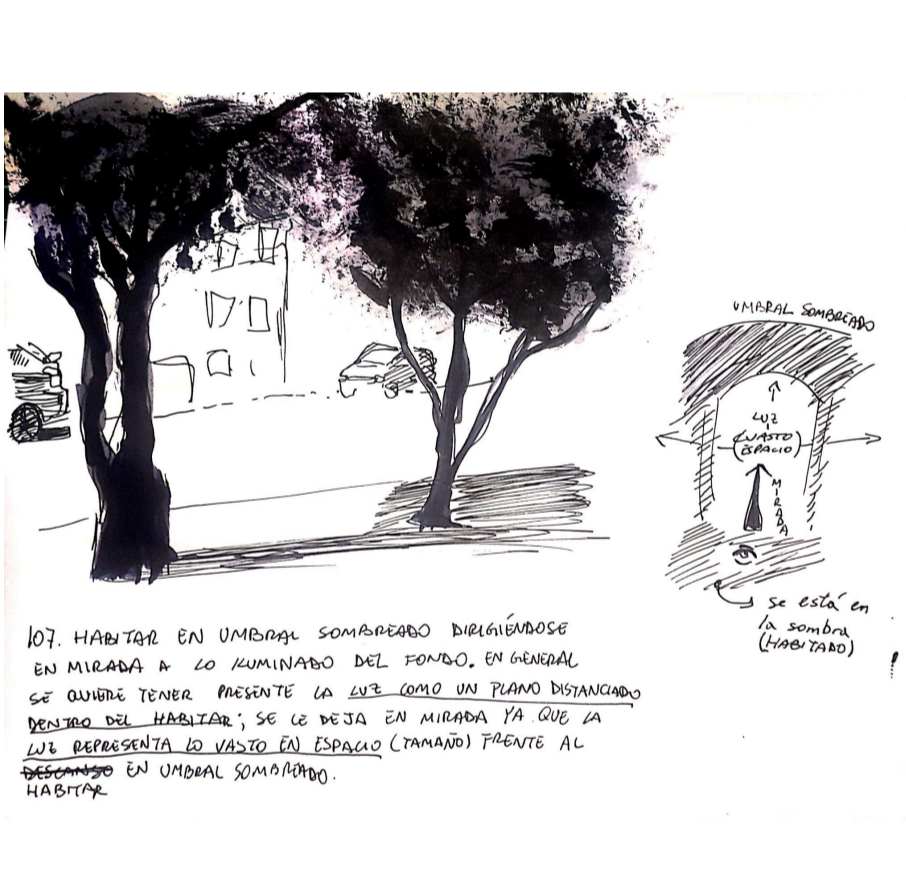 UMBRAL SOMBREADO
LUZ
(VASTO
ESPACIO)
MIRADA
se está en
la sombra
(HABITADO)
107. HABITAR EN UMBRAL SOMBREADO DIRIGIÉNDOSE
EN MIRADA A LO ILUMINADO DEL FONDO. EN GENERAL
SE QUIERE TENER PRESENTE LA LUZ COMO UN PLANO DISTANCIADO
DENTRO DEL HABITAR; SE LE DEJA EN MIRADA YA QUE LA
LUZ REPRESENTA LO VASTO EN ESPACIO (TAMAÑO) FRENTE AL
DESCANSO EN UMBRAL SOMBREADO.
HABITAR